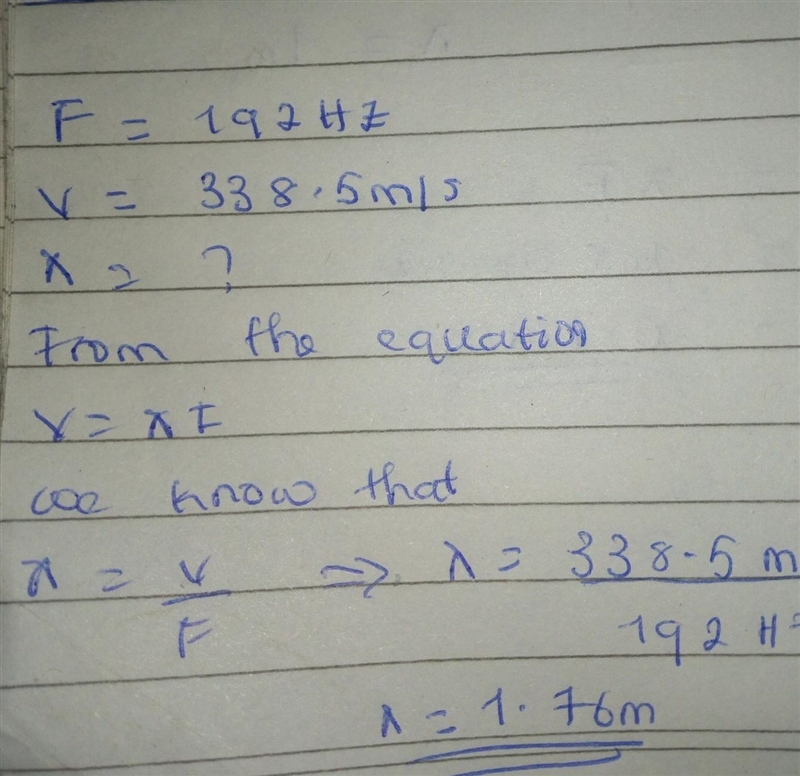 F = 192 HZ
V = 338.5 m/s
λ = ?
From the equation
V = λF
we know that
λ = V/F ⇒ λ = 338.5 m / 192 H
λ = 1.76m